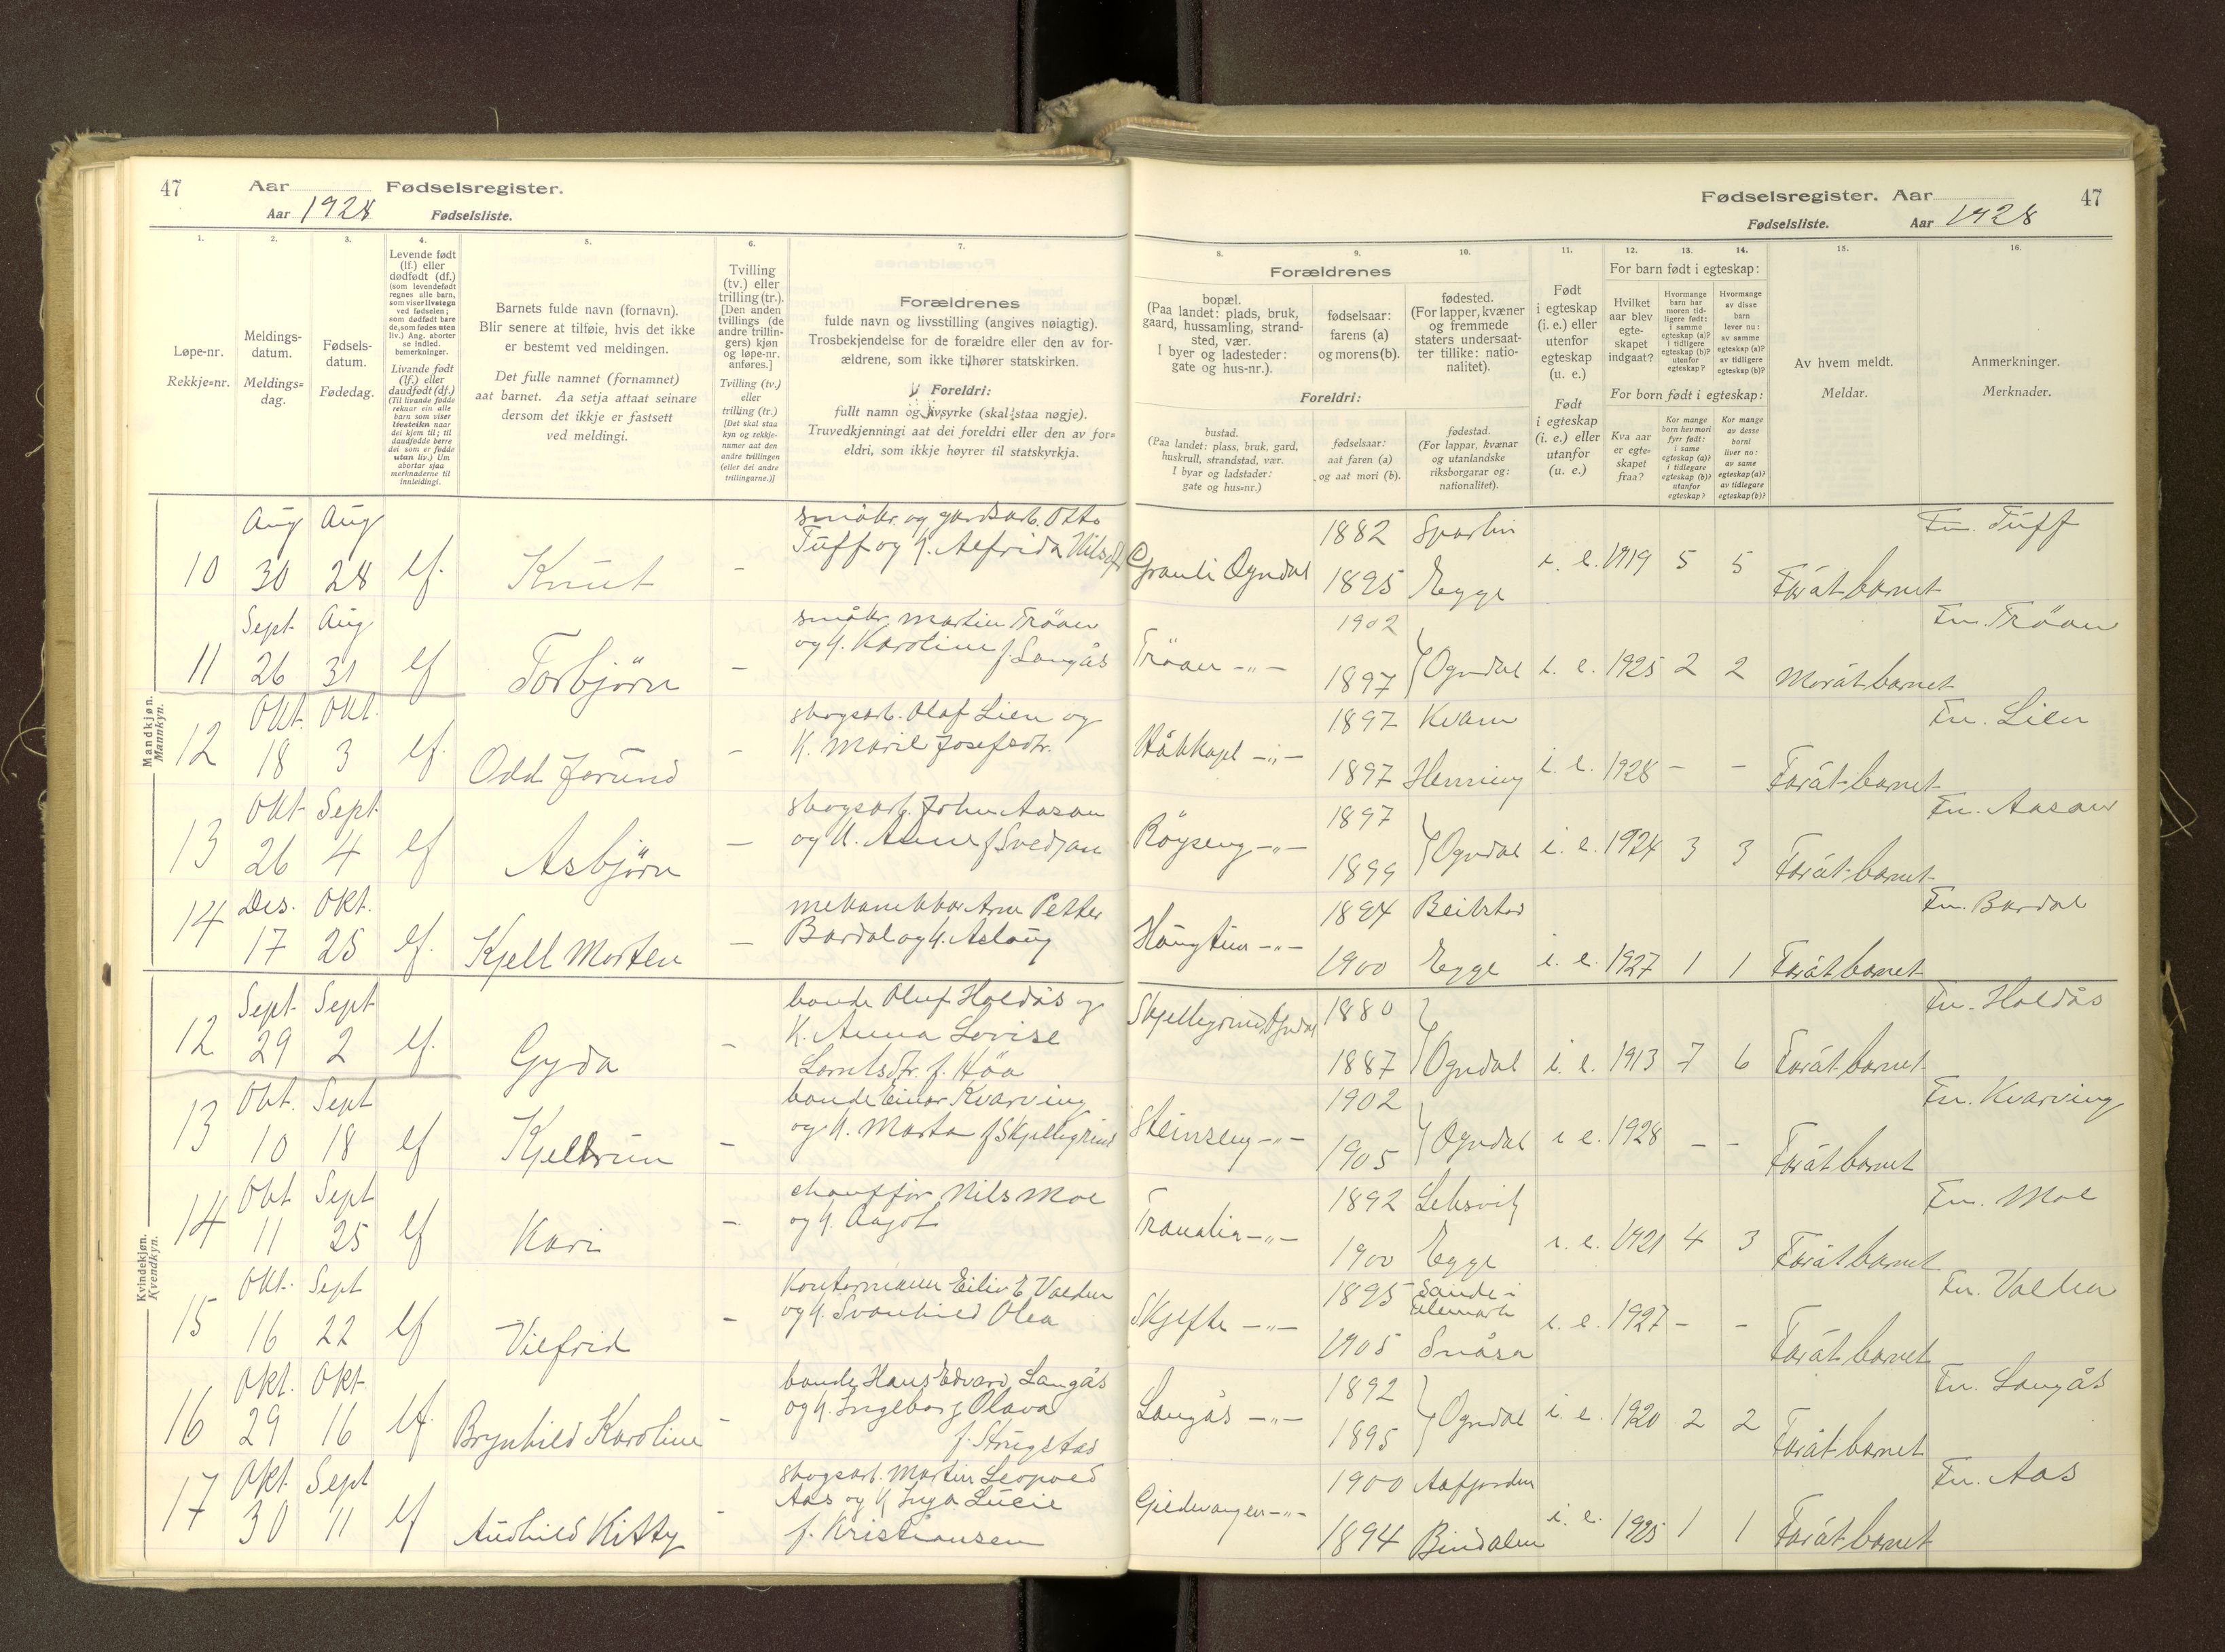 47 Aar Fødselsregister.
Aar 1928 Fødselsliste.
Fødselsregister. Aar 47
Fødselsliste. Aar 1928
1. 2. 3. 4. 5. 6. 7.
8. 9. 10. 11. 12. 13. 14. 15. 16.
Løpe-nr.
Rekkje=nr.
Meldings-
datum.
Meldings=
dag.
Fødsels-
datum.
Fødedag.
Levende født
(lf.) eller
dødfødt (df.)
(som levendefødt
regnes alle barn,
som viser livstegn
ved fødselen;
som dødfødt bare
de, som fødes uten
liv.) Ang. aborter
se indled.
bemerkninger.
Livande født
(lf.) eller
daudfødt (df.)
(Til livande fødde
reknar ein alle
barn som viser
livsteikn naar
dei kjem til; til
daudfødde berre
dei som er fødde
utan liv.) Um
abortar sjaa
merknaderne til
innleidingi.
Barnets fulde navn (fornavn).
Blir senere at tilføie, hvis det ikke
er bestemt ved meldingen.
Det fulle namnet (fornamnet)
aat barnet. Aa setja attaat seinare
dersom det ikkje er fastsett
ved meldingi.
Tvilling
(tv.) eller
trilling (tr.).
[Den anden
tvillings (de
andre trillin-
gers) kjøn
og løpe-nr.
anføres.]
Tvilling (tv.)
eller
trilling (tr.)
[Det skal staa
kyn og rekkje-
numer aat den
andre tvillingen
(eller dei andre
trillingarne.)]
Forældrenes
fulde navn og livsstilling (angives nøiagtig).
Trosbekjendelse for de forældre eller den av for-
ældrene, som ikke tilhører statskirken.
Foreldri:
fullt namn og livsyrke (skal staa nøgje).
Truvedkjenningi aat dei foreldri eller den av for=
eldri, som ikkje høyrer til statskyrkja.
Forældrenes
bopæl.
(Paa landet: plads, bruk,
gaard, hussamling, strand-
sted, vær.
I byer og ladesteder:
gate og hus-nr.).
fødselsaar:
farens (a)
og morens (b).
fødested.
(For lapper, kvæner
og fremmede
staters undersaat-
ter tillike: natio-
nalitet).
Foreldri:
bustad.
(Paa landet: plass, bruk, gard,
huskrull, strandstad, vær.
I byar og ladstader:
gate og hus=nr.)
fødselsaar:
aat faren (a)
og aat mori (b).
fødestad.
(For lappar, kvænar
og utanlandske
riksborgarar og:
nationalitet).
Født
i egteskap
(i. e.) eller
utenfor
egteskap
(u. e.)
Født
i egteskap
(i. e.) eller
utanfor
(u. e.)
For barn født i egteskap:
Hvilket
aar blev
egte-
skapet
indgaat?
Hvormange
barn har
moren tid-
ligere født:
i samme
egteskap (a)?
i tidligere
egteskap (b)?
utenfor
egteskap?
Hvormange
av disse
barn
lever nu:
av samme
egteskap (a)?
av tidligere
egteskap (b)?
For born født i egteskap:
Kva aar
er egte=
skapet
fraa?
Kor mange
born hev mori
fyrr født:
i same
egteskap (a)?
i tidlegare
egteskap (b)?
utanfor
egteskap?
Kor mange
av desse
borni
liver no:
av same
egteskap (a)?
av tidlegare
egteskap (b)?
Av hvem meldt.
Meldar.
Anmerkninger.
Merknader.
Mandkjøn.
Mannkyn.
10 Aug 30 Aug 28 lf. Knut –
småbr. og gardsarb. Otto
Tuff og k. Alfrida Nilsdtr
Granli Ogndal 1882 Sparbu 1895 Egge i. e. 1919 5 5 Far åt barnet Fn. Tuff
11 Sept 26 Aug 31 lf Torbjörn –
småbr. Martin Tröan
og k. Karoline f. Langås
Tröan –"– 1902 1897 Ogndal i. e. 1925 2 2 Mor åt barnet Fn. Tröan
12 Okt. 18 Okt. 3 lf. Odd Jorund –
skogsarb. Olaf Lien og
k. Marie Josefsdtr.
–"– 1897 Kvam 1897 Henning i. e. 1928 – – Far åt barnet Fn. Lien
13 Okt 26 Sept. 4 lf Asbjörn –
skogsarb. John Aasan
og k. Anna f Svedjan
Röyseng –"– 1897 1899 Ogndal i. e. 1924 3 3 Far åt barnet Fn. Aasan
14 Des. 17 Okt. 25 lf. Kjell Morten –
mekanikkar Arne Petter
Bardal og k. Aslaug
Haugtun –"– 1894 Beitstad 1900 Egge i. e. 1927 1 1 Far åt barnet Fn. Bardal
Kvindekjøn.
Kvendkyn.
12 Sept 29 Sept 2 lf. Gyda –
bonde Oluf Holdås og
k. Anna Lovise
Lorntsdtr. f. Höa
Skjellegrind, Ogndal 1880 1887 Ogndal i. e. 1913 7 6 Far åt barnet Fn. Holdås
13 Okt. 10 Sept 18 lf Kjellrun –
bonde Einar Kvarving
og k. Marta f Skjellegrind
Steinseng –"– 1902 1905 Ogndal i e. 1928 – – Far åt barnet Fn. Kvarving
14 Okt 11 Sept 25 lf Kari –
chauffør Nils Moe
og k. Aagot
Tranalia –"– 1892 Leksvik 1900 Egge i. e. 1921 4 3 Far åt barnet Fn. Moe
15 Okt. 16 Sept 22 lf Vilfrid –
Kontormann Eiliv E Valden
og k. Svanhild Olea
Skjefte –"– 1895 Sande i 1905 Snåsa i. e. 1927 – – Far åt barnet Fn. Valden
16 Okt. 29 Okt. 16 lf. Brynhild Karoline –
bonde Hans Edvard Langås
og k. Ingeborg Olava
f. Strugstad
Langås –"– 1892 1895 Ogndal i. e. 1920 2 2 Far åt barnet Fn. Langås
17 Okt. 30 Sept 11 lf Audhild Kitty –
skogsarb. Martin Leopold
Aas og k Inga Lucie
f. Kristiansen
Gildevangen –"– 1900 Aafjorden 1894 Bindalen i. e. 1925 1 1 Far åt barnet Fn. Aas